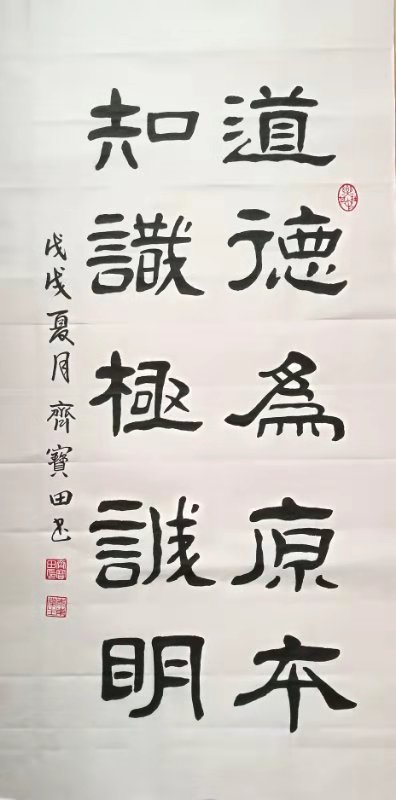 道德為原本
知識極誠明
戊戌夏月齊寶田書